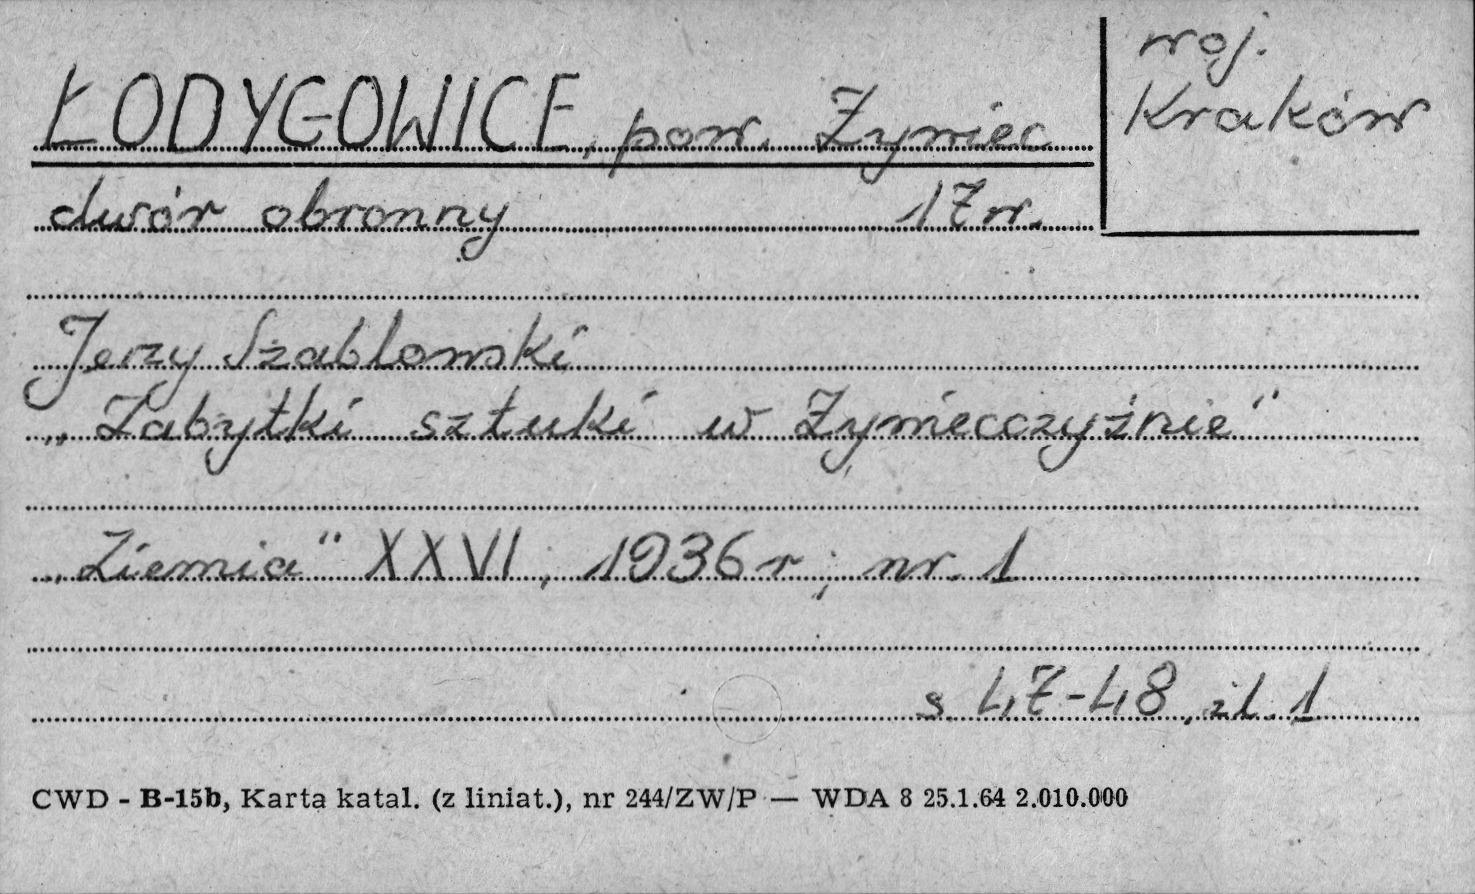 ŁODYGOWICE, pow. Żywiec
woj.
Kraków
dwór obronny 17 w.
Jerzy Szablowski
„Zabytki sztuki w Żywiecczyźnie"
„Ziemia" XXVI, 1936 r; nr. 1
s. 47-48, il. 1
CWD - B-15b, Karta katal. (z liniat.), nr 244/ZW/P — WDA 8 25.1.64 2.010.000